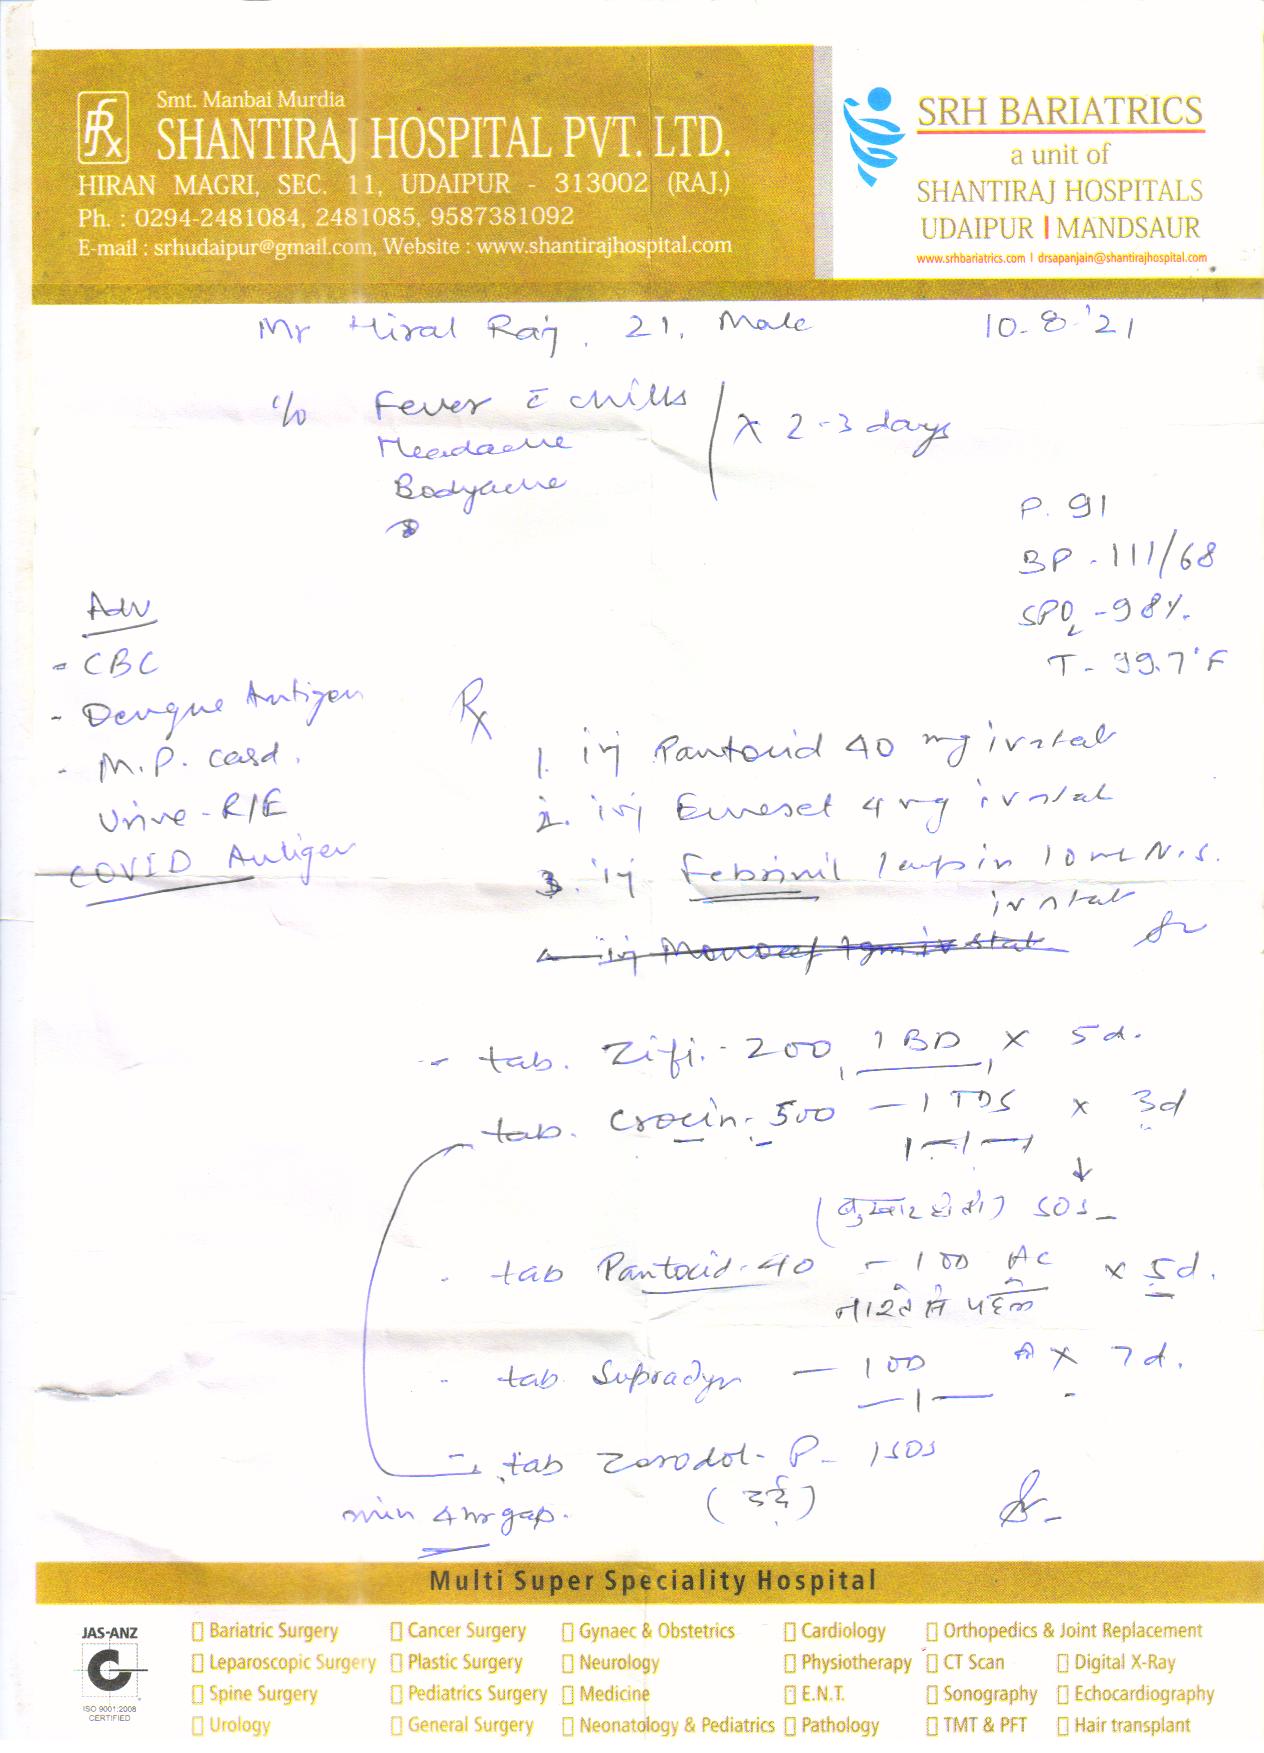 Smt. Manbai Murdia
SHANTIRAJ HOSPITAL PVT. LTD.
HIRAN MAGRI, SEC. 11, UDAIPUR - 313002 (RAJ.)
Ph. : 0294-2481084, 2481085, 9587381092
E-mail : srhudaipur@gmail.com, Website : www.shantirajhospital.com
SRH BARIATRICS
a unit of
SHANTIRAJ HOSPITALS
UDAIPUR | MANDSAUR
www.srhbariatrics.com | drsapanjain@shantirajhospital.com
Mr Hiral Raj, 21, Male 10-8-'21
c/o Fever c̄ chills
Headache
Bodyache
x 2-3 days
P. 91
BP - 111/68
SPO2 - 98%.
T - 99.7°F
Adv
- CBC
- Dengue Antigen
- M.P. card.
Urine - R/E
COVID Antigen
Rx
1. inj Pantocid 40 mg iv stat
2. inj Emeset 4 mg iv stat
3. inj Febrinil 1 amp in 10 ml N.S.
iv stat
4 inj Monocef 1gm iv stat
- tab. Zifi - 200 1 BD x 5d.
tab. Crocin - 500 - 1 TDS x 3d
(बुखार हो तो) SOS
- tab Pantocid - 40 - 1 OD AC x 5d.
नाश्ते से पहले
- tab Supradyn - 1 OD x 7d.
- tab Zerodol - P - 1 SOS
(दर्द)
min 4 hr gap.
Multi Super Speciality Hospital
JAS-ANZ
ISO 9001:2008
CERTIFIED
Bariatric Surgery Cancer Surgery Gynaec & Obstetrics Cardiology Orthopedics & Joint Replacement
Leparoscopic Surgery Plastic Surgery Neurology Physiotherapy CT Scan Digital X-Ray
Spine Surgery Pediatrics Surgery Medicine E.N.T. Sonography Echocardiography
Urology General Surgery Neonatology & Pediatrics Pathology TMT & PFT Hair transplant